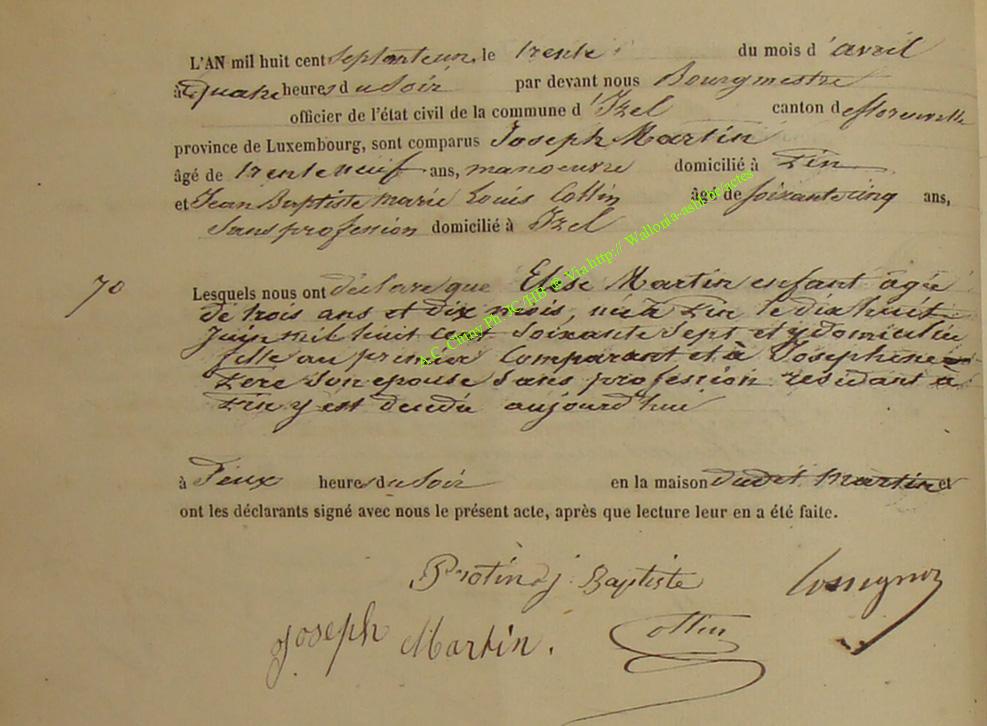 L'AN mil huit cent Septanteun, le trente du mois d'avril
à quatre heures du Soir par devant nous Bourgmestre
officier de l'état civil de la commune d'Izel canton de florenville
province de Luxembourg, sont comparus Joseph Martin
âgé de trenteneuf ans, manoeuvre domicilié à Pin
et Jean Baptiste marie Louis Collin âgé de soixantecinq ans,
Sans profession domicilié à Izel
70
Lesquels nous ont déclaré que Elise Martin enfant agée
de trois ans et dix mois, née à Pin le dixhuit
Juin mil huit cent Soixante Sept et y domiciliée
fille au premier Comparant et à Josephine
son epouse Sans profession residant à
Pin y est décédée aujourd'hui
à Deux heures du Soir en la maison dudit Martin et
ont les déclarants signé avec nous le présent acte, après que lecture leur en a été faite.
j. Baptiste
Joseph Martin.
Collin
A.C. Chiny Ph JC/HB & Via http:// Wallonia-asbl.or/actes